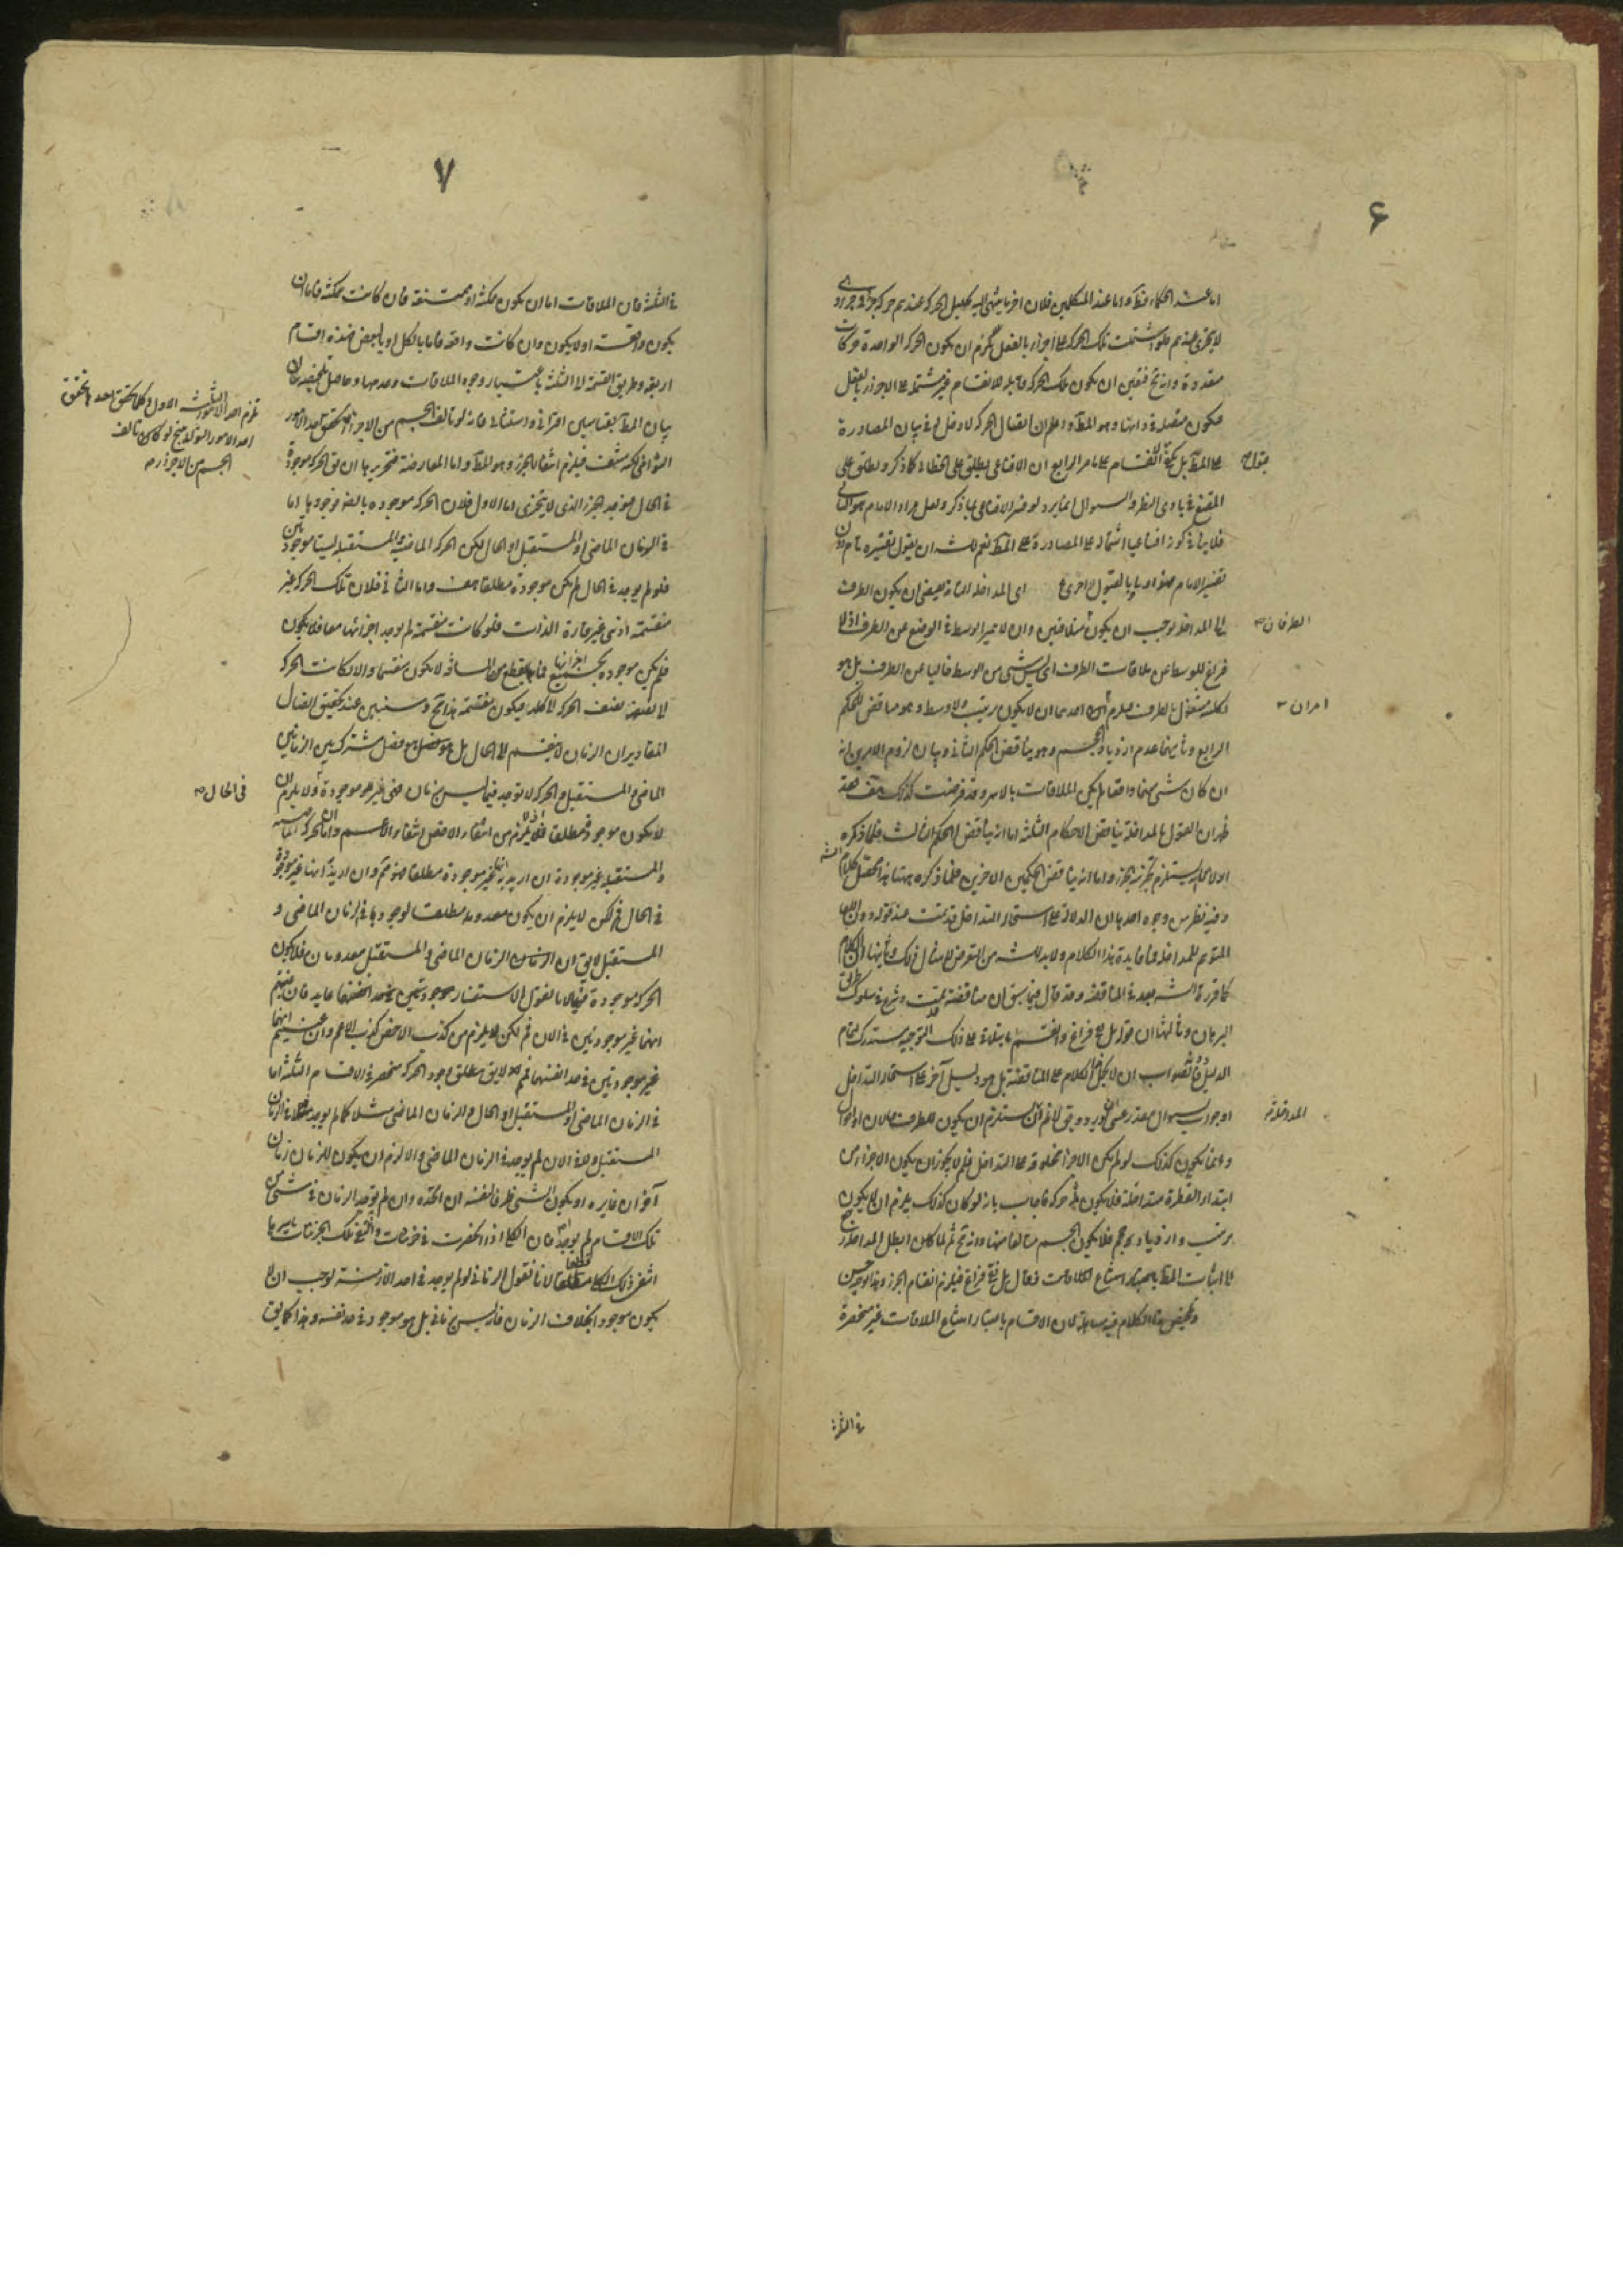 ۶
اما عند الحكماء فظ واما عند المتكلمين فلان اخر ما ينتهى اليه تحليل الحركة عندهم حركة جزء فى جزء
لا يتجزى عندهم فلو اشتملت تلك الحركة على اجزاء بالفعل لزم ان يكون الحركة الواحدة حركات
متعددة وانه مح فتعين ان يكون تلك الحركة قابلة للانقسام غير مشتملة على الاجزاء بالفعل
فيكون متصلة فى ذاتها وهو المط واعلم ان اتصال الحركة لا دخل له فى بيان المصادرة
على المط بل يكفى الانقسام على ما مر الرابع ان الاقناعى يطلق على الخطابى كما ذكر ويطلق على
بقوله
المقنع فى بادى النظر والسوال انما يرد لو فسر الاقناعى بما ذكر ولعل مراد الامام هو الثانى
فلا ينافى كونه اقناعيا اشتماله على المصادرة على المط نعم للش ان يقول تفسيره تام دون
تفسير الامام فهو اولى بالقبول اى المداخلة التامة يعنى ان يكون الطرف
الطرفان
المداخلة يوجب ان يكون متلاقيين وان لا يتميز الوسط فى الوضع عن الطرف اذ لا
فراغ للوسط عن ملاقات الطرف اى ليس شئ من الوسط خاليا عن الطرف بل هو
امران
بكله مشغول بالطرف فيلزم احدهما ان لا يكون ترتيب ولا وسط وهو مناقض للحكم
الرابع وثانيهما عدم ازدياد الحجم وهو يناقض الحكم الثانى وبيان لزوم الامرين انه
ان كان شئ منهما واقعا لم يكن الملاقات بالاسر وقد فرضت كذلك هف فقد
ظهر ان القول بالمداخلة يناقض الاحكام الثلثة اما انه يناقض الحكم الثالث فلما ذكره
اولا من انه يستلزم تجزئة الجزء واما انه يناقض الحكمين الاخرين فلما ذكره ههنا هذا تحصيل كلام الش
وفيه نظر من وجوه احدها ان الدلالة على استحالة التداخل قد تمت عند قوله دون اللقاء
المتوهم للمداخلة فما فايدة هذا الكلام ولا بد للش من التعرض لامثال ذلك وثانيها ان الكلام
كما قرره الش بعد فى المناقضة وقد قال فيما سبق ان مناقضته تمت وشرع فى سلوك طريق
البرهان وثالثها ان قوله بل فراغ والقسم باشتماله على ذلك التوجيه مستدرك لتمام
الدليل فالصواب ان لا يحمل هذا الكلام على المناقضة بل هو دليل آخر على استحالة التداخل
المداخلة
او جواب لسوال مقدر عسى ان يورد ويقال لا نم ان يستلزم ان يكون للطرف ملاق
وانما يكون كذلك لو لم يكن الاجزاء مخلوقة على التداخل فلم لا يجوز ان يكون الاجزاء من
ابتداء الفطرة متداخلة فلا يكون ثمة حركة فاجاب بانه لو كان كذلك يلزم ان لا يكون
ترتيب وازدياد حجم فلا يكون الجسم متالفا منها وانه مح ثم لما كان ابطل المداخلة رجع
الى اثبات المط باعتبار امتناع الملاقات فقال بل يبقى فراغ فيلزم انقسام الجزء وهذا توجيه حسن
وتلخيص هذا الكلام فيه مساهلة لان الاقسام باعتبار امتناع الملاقات غير منحصرة
فى الثلثة
۷
فى الثلثة فان الملاقات اما ان يكون ممكنة او ممتنعة فان كانت ممكنة فاما ان
يكون واقعة او لا يكون وان كانت واقعة فاما بالكل او بالبعض فهذه اقسام
اربعة وطريق القسمة الى الثلثة باعتبار وجوه الملاقات وعدمها وحاصل تلخيصه ان
بيان المط بقياسين اقترانى واستثنائى فانه لو تالف الجسم من الاجزاء تحقق احد الامور
يلزم احد الامور الثلثة الاول وكلما تحقق احدها تحقق
احد الامور البواقى ينتج لو كان تالف
الجسم من الاجزاء
البواقى لكنه منتف فيلزم انتفاء الجزء وهو المط واما المعارضة فتحريرها ان يق الحركة موجودة
فى الحال فيوجد الجزء الذى لا يتجزى اما الاول فلان الحركة موجودة بالضرورة فوجودها اما
فى الزمان الماضى او المستقبل او الحال لكن الحركة الماضية والمستقبلة ليستا موجودتين
فلو لم يوجد فى الحال لم يكن موجودة مطلقا هف واما الثانى فلان تلك الحركة غير
منقسمة اذ هى غير قارة الذات فلو كانت منقسمة لم يوجد اجزائها معا فلا يكون
فلم يكن موجودة بجميع اجزائها فما به يقطع من المسافة لا يكون منقسما والا لكانت الحركة
الى نصفه نصف الحركة الى كله فيكون منقسمة هذا مح وسنبين عند تحقيق اتصال
المقادير ان الزمان لا ينقسم الى الحال بل هو فصل مشترك بين الزمانين
الماضى والمستقبل والحركة لا توجد فيما ليس بزمان فهى غير موجودة ولا يلزم ان
فى الحال
لا يكون موجودة مطلقا اذ لا يلزم من انتفاء الاخص انتفاء الاعم واما ان الحركة الماضية
والمستقبلة غير موجودة ان اريد به انها غير موجودة مطلقا فهو مم وان اريد انها غير موجودة
فى الحال فم لكن لا يلزم ان يكون معدومة مطلقا لوجودها فى الزمان الماضى و
المستقبل لا يق ان الزمان الماضى والمستقبل معدومان فلا يكون
الحركة موجودة فيهما لانا نقول الاستفسار عايد فان
انهما غير موجودتين فى الان فم لكن لا يلزم من كذب الاخص كذب الاعم وان عنيتم انهما
غير موجودتين فى حد انفسهما فم لا يق مطلق وجود الحركة منحصر فى الاقسام الثلثة اما
فى الزمان الماضى او المستقبل او الحال والزمان الماضى مثلا كما لم يوجد فى الزمان
المستقبل ولا فى الان لم يوجد فى الزمان الماضى والا لزم ان يكون للزمان زمان
آخر ان غايره او يكون الشئ ظرفا لنفسه ان اتحد وان لم يوجد الزمان فى شئ من
تلك الاقسام لم يوجد اصلا فان الكلى اذا انحصرت فى جزئيات وانتفى تلك الجزئيات باسرها
انتفى ذلك الكلى قطعا لانا نقول الزمانى لو لم يوجد فى احد الازمنة لوجب ان لا
يكون موجودا بخلاف الزمان فانه ليس زمانى بل هو موجود فى حد نفسه وهذا كما يق